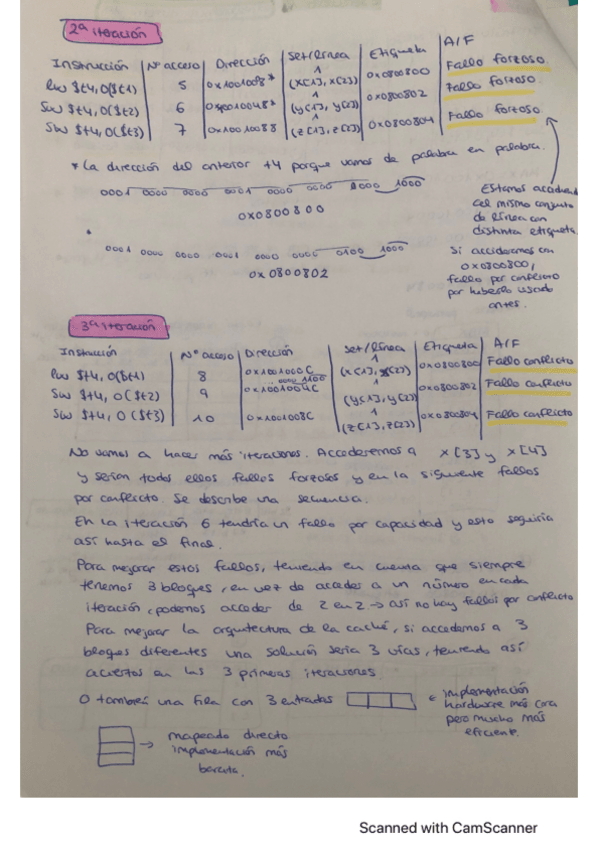 2ª iteración
Instrucción Nº acceso Dirección Set/línea Etiqueta A/F
lw $t4, 0($t1) 5 0x1001008* 1 (x[1], x[2]) 0x0800800 Fallo forzoso.
Sw $t4, 0($t2) 6 0x10010048* 1 (y[1], y[2]) 0x0800802 Fallo forzoso.
Sw $t4, 0($t3) 7 0x10010088 1 (z[1], z[2]) 0x0800804 Fallo forzoso.
* La dirección del anterior +4 porque vamos de palabra en palabra.
0001 0000 0000 0001 0000 0000 0000 1000
0x0800800
0001 0000 0000 0001 0000 0000 0100 1000
0x0800802
Estamos accediendo
al mismo conjunto
de línea con
distinta etiqueta.
Si accedieramos con
0x0800800,
fallo por conflicto
por haberlo usado
antes.
3ª iteración
Instrucción Nº acceso Dirección Set/línea Etiqueta A/F
lw $t4, 0($t1) 8 0x1001000C 1 (x[1], x[2]) 0x0800800 Fallo conflicto
0000 1100
Sw $t4, 0($t2) 9 0x1001004C 1 (y[1], y[2]) 0x0800802 Fallo conflicto
Sw $t4, 0($t3) 10 0x1001008C 1 (z[1], z[2]) 0x0800804 Fallo conflicto
No vamos a hacer más iteraciones. Accederemos a x[3] y x[4]
y serían todos ellos fallos forzosos y en la siguiente fallos
por conflicto. Se describe una secuencia.
En la iteración 6 tendría un fallo por capacidad y esto seguiría
así hasta el final.
Para mejorar estos fallos, teniendo en cuenta que siempre
tenemos 3 bloques, en vez de acceder a un número en cada
iteración, podemos acceder de 2 en 2 → así no hay fallos por conflicto
Para mejorar la arquitectura de la caché, si accedemos a 3
bloques diferentes una solución sería 3 vías, teniendo así
aciertos en las 3 primeras iteraciones.
O también una fila con 3 entradas ← implementación
hardware más cara
pero mucho más
eficiente.
→ mapeado directo
implementación más
barata.
Scanned with CamScanner